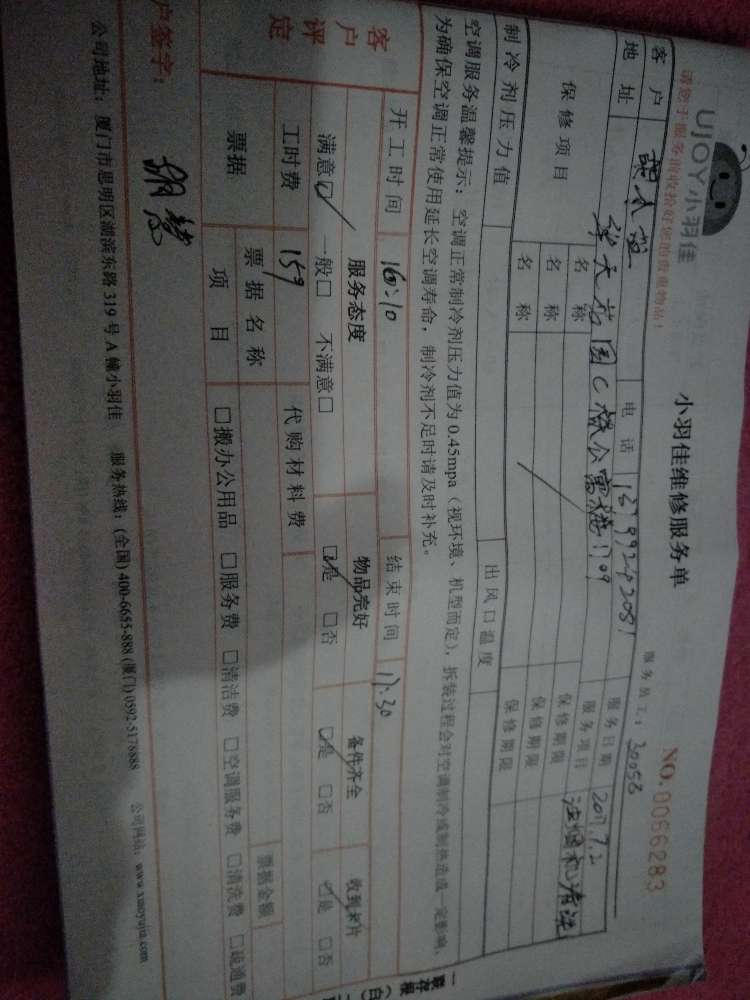 UJOY小羽佳
小羽佳维修服务单
NO.0066283
请您于服务前收拾好您的贵重物品!
服务员工: 30058
客户 电话 服务日期 2017.7.2
地址 服务项目 油烟机清洗
保修项目 名称 保修期限
名称 保修期限
名称 保修期限
制冷剂压力值 出风口温度
空调服务温馨提示: 空调正常制冷剂压力值为 0.45mpa (视环境、机型而定), 拆装过程会对空调制冷或制热造成一定影响,
为确保空调正常使用延长空调寿命, 制冷剂不足时请及时补充。
开工时间 16:10 结束时间 17:30
客户评定 服务态度 物品完好 备件齐全 收到卡片
满意☑ 一般□ 不满意□ ☑是 □否 ☑是 □否 ☑是 □否
工时费 159 代购材料费
票据 票据名称 票据金额
项目 □搬办公用品 □服务费 □清洁费 □空调服务费 □清洗费 □疏通费
户签字:
公司地址: 厦门市思明区湖滨东路 319 号 A 幢小羽佳 服务热线: (全国) 400-6655-888 (厦门) 0592-5176888 公司网站: www.xiaoyujia.com